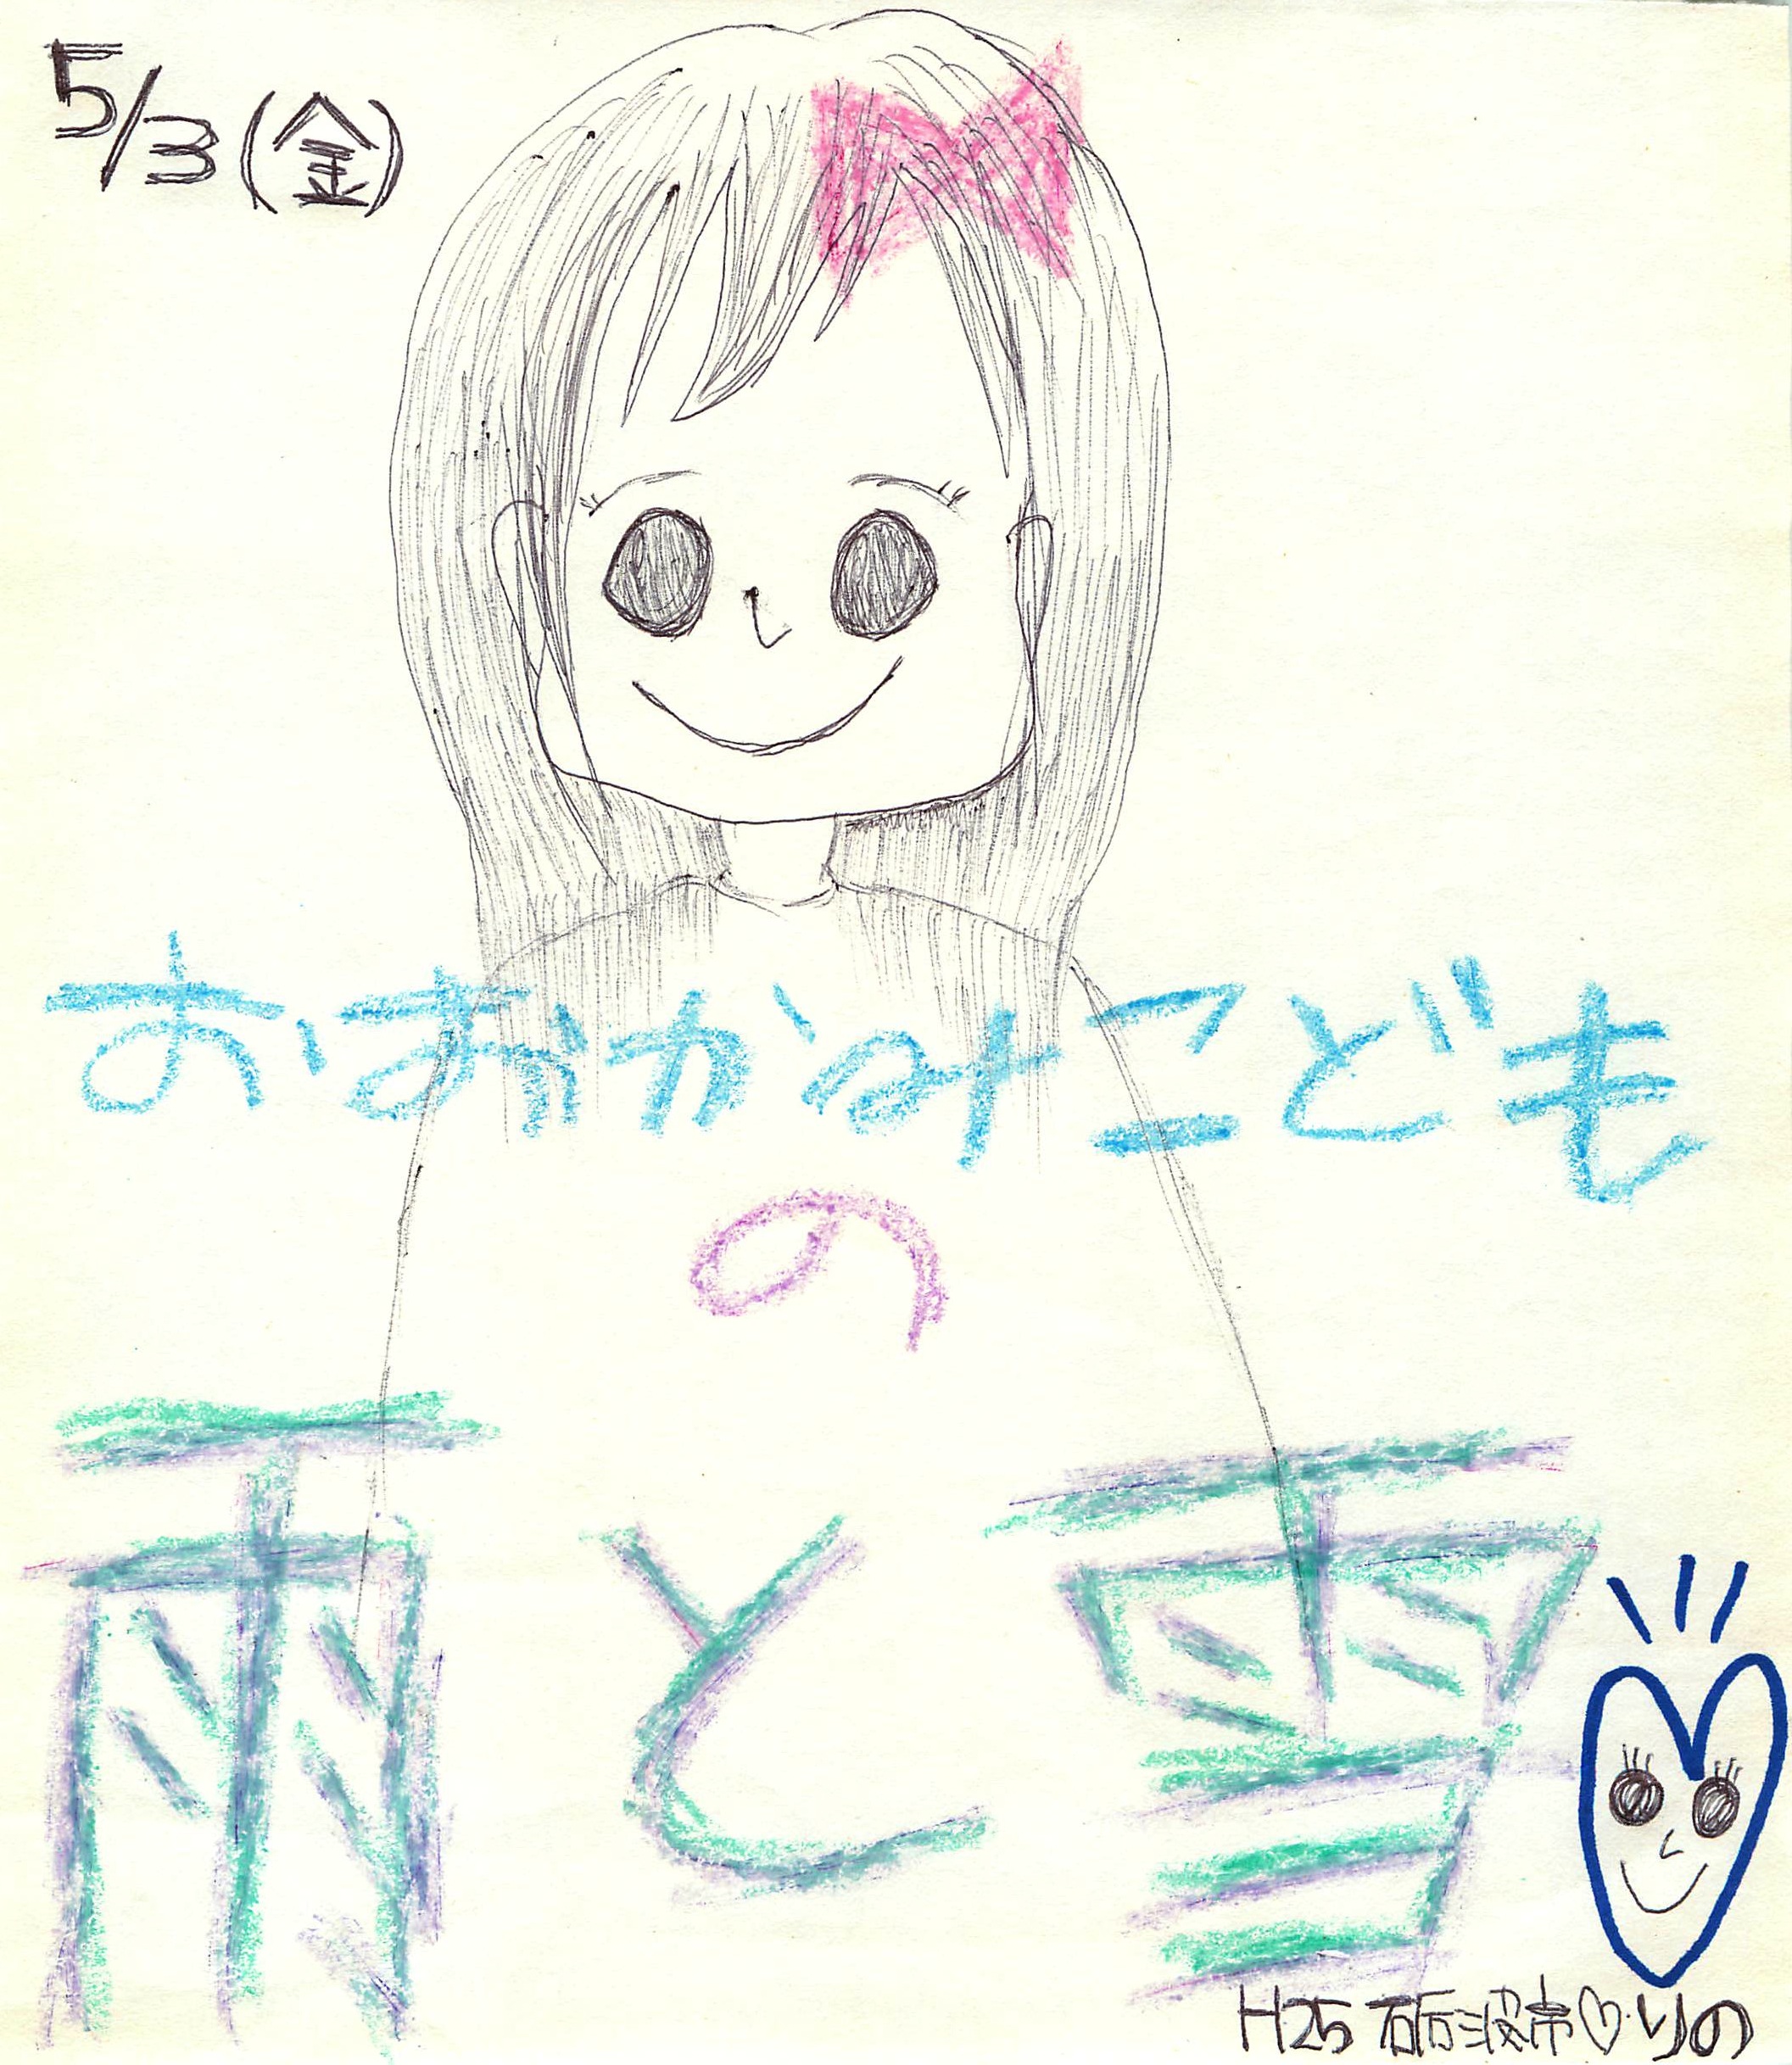 5/3(金)
おおかみこども
の
雨と雪
H25 砺波市♡りの